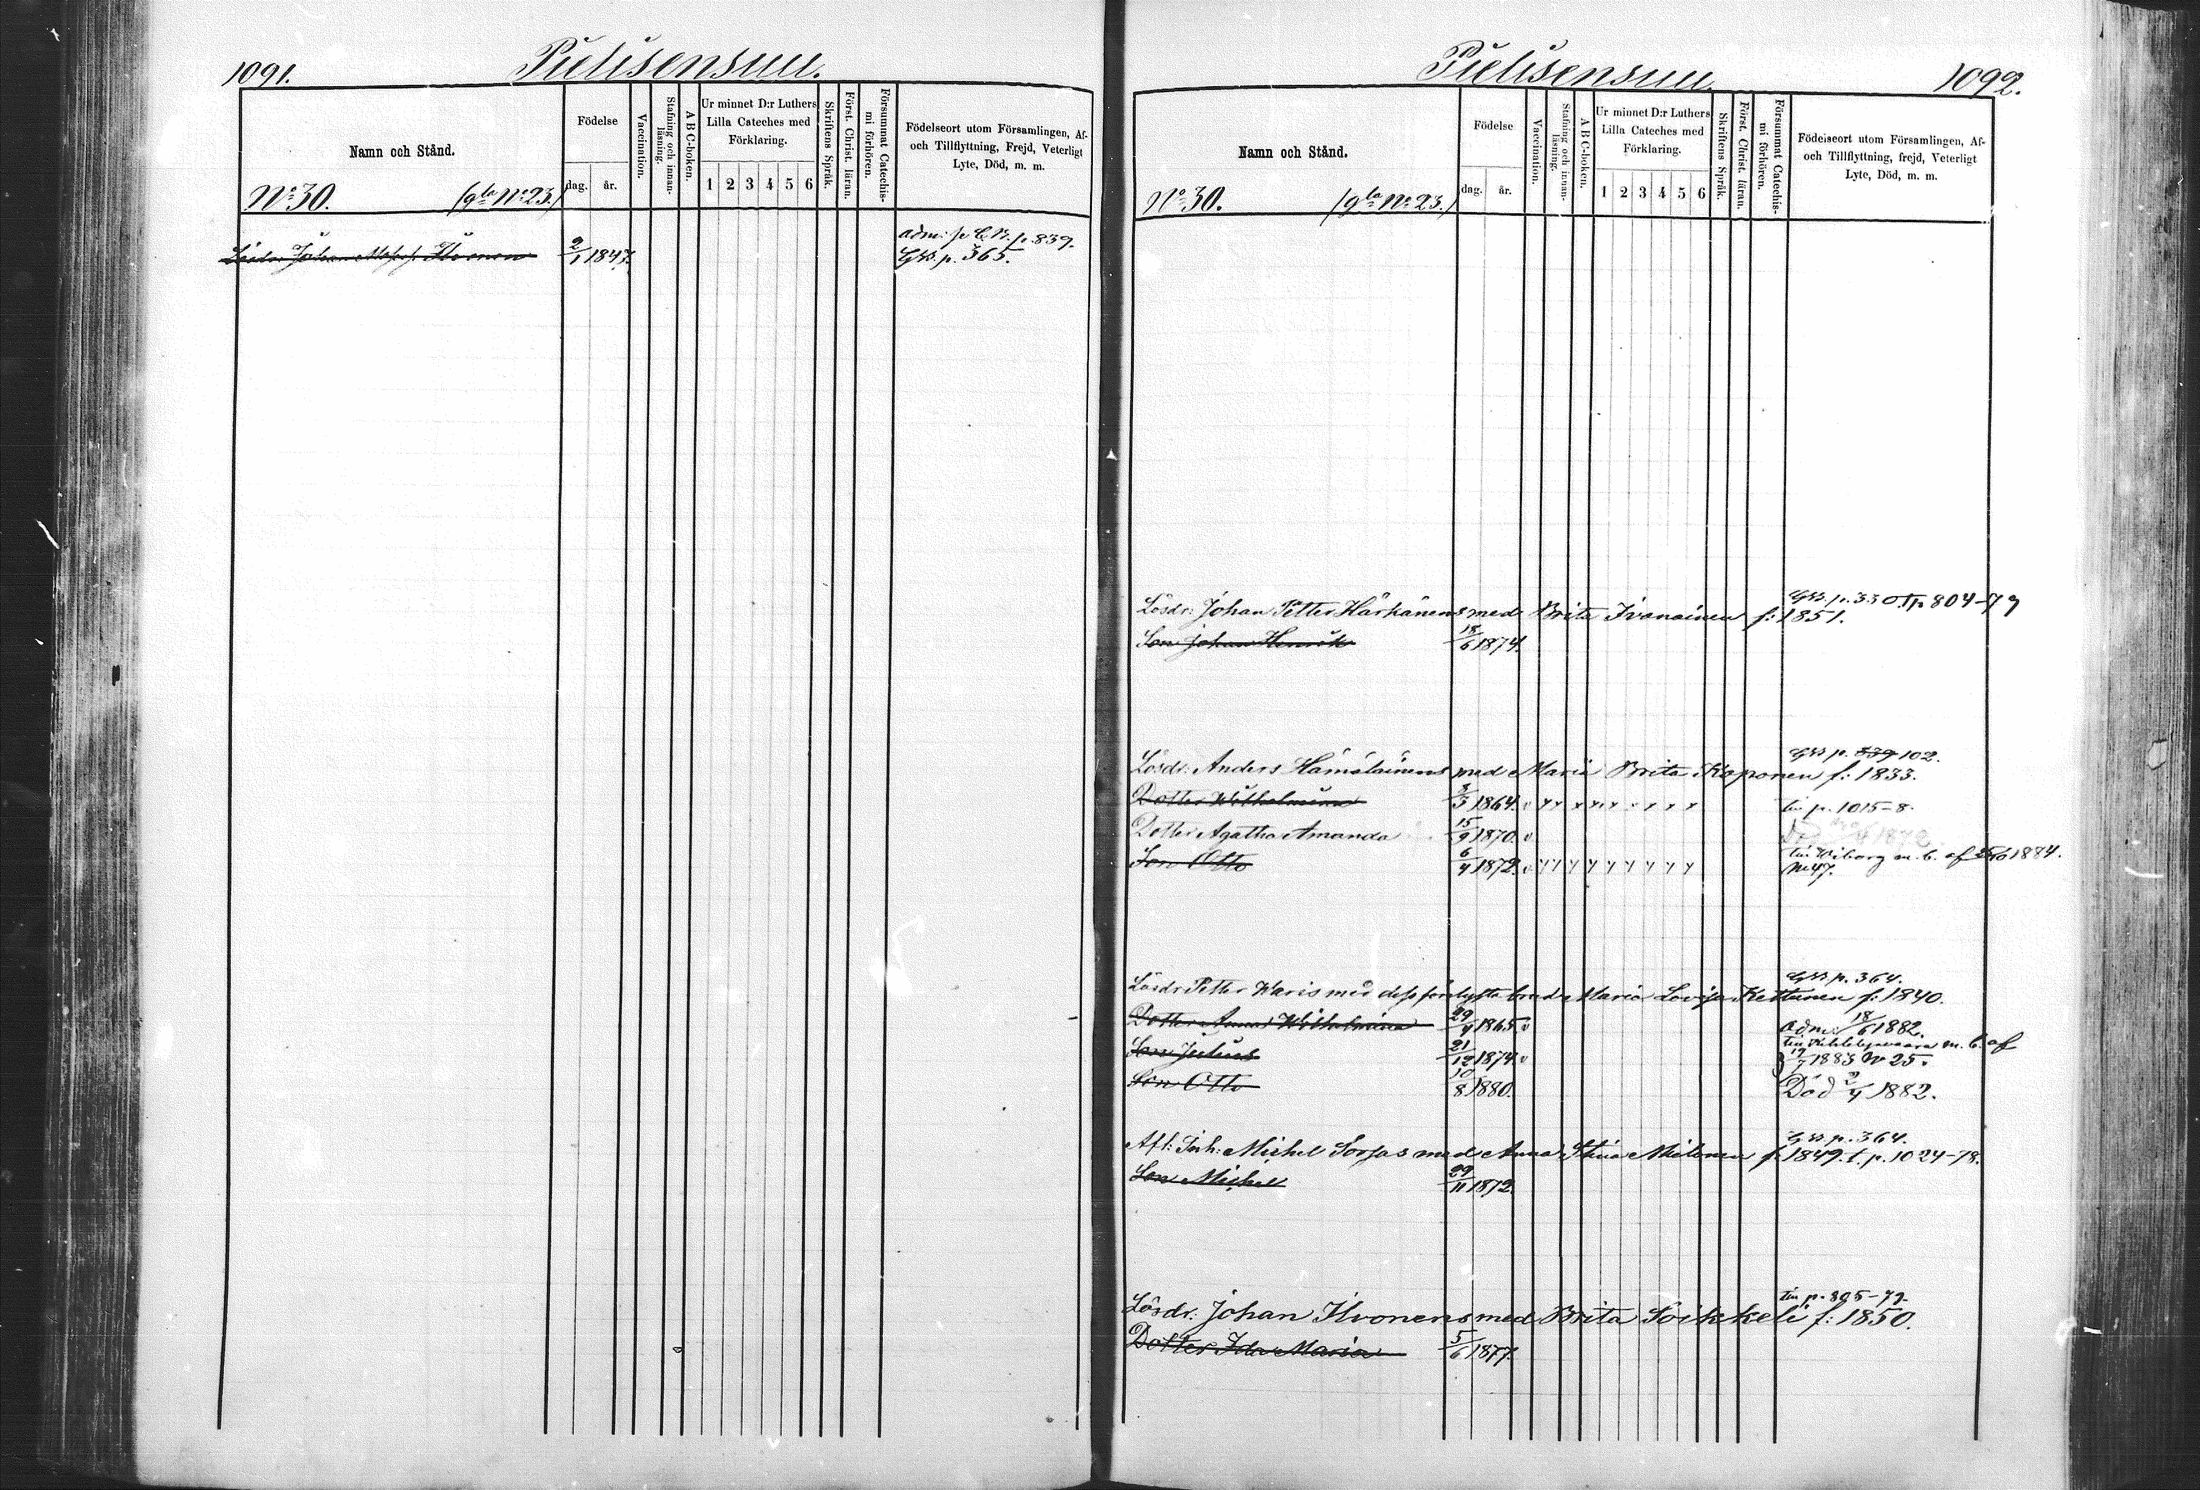 1091.
Pielisensuu.
Namn och Stånd.
Födelse
dag.
år.
Vaccination.
Stafning och innanläsning.
A B C-boken.
Ur minnet D:r Luthers
Lilla Cateches med
Förklaring.
1 2 3 4 5 6
Skriftens Språk.
Först. Christ. läran.
Försummat Catechismi förhören.
Födelseort utom Församlingen, Af-
och Tillflyttning, Frejd, Veterligt
Lyte, Död, m. m.
No 30. (gla No 23.)
adm: p. 839.
Lösdr: Johan Ilvonen 2/1 1847. p. 365.
Pielisensuu.
1092.
Namn och Stånd.
Födelse
dag.
år.
Vaccination.
Stafning och innanläsning.
A B C-boken.
Ur minnet D:r Luthers
Lilla Cateches med
Förklaring.
1 2 3 4 5 6
Skriftens Språk.
Först. Christ. läran.
Försummat Catechismi förhören.
Födelseort utom Församlingen, Af-
och Tillflyttning, frejd, Veterligt
Lyte, Död, m. m.
No 30. (gla No 23.)
p. 330. Tp 804-79
Lösdr: Johan Petter Härkänens med Brita Ivanainen f: 1851.
Son Johan Henrik 18/6 1874.
p. 339 102.
Lösdr: Anders Hämäläinens med Maria Brita Kaponen f: 1833.
Dotter Wilhelmina 8/3 1864. v p. 1015-8
Dotter Agatha Amanda 15/9 1870. v
Son Otto 6/4 1872. v Till Wiborg m. b. af 1884.
No 47.
p. 364.
Lösdr Petter Waris med dess förlofvade Maria Lovisa Kettunen f: 1840.
Dotter Anna Wilhelmina 29/4 1865. v adm: 18/6 1882.
Son Julius 21/12 1874. v m. b. af
1883 No 25.
Son Otto 10/8 1880. Död 2/4 1882.
p. 364.
Afl: Inh: Michel Sorjas med Anna Stina Miilonen f: 1849. t. p. 1024-78.
Son Michel 29/11 1872.
Till p. 805-79.
Lösdr: Johan Ilvonens med Brita Soikkeli f: 1850.
Dotter Ida Maria 5/6 1877.